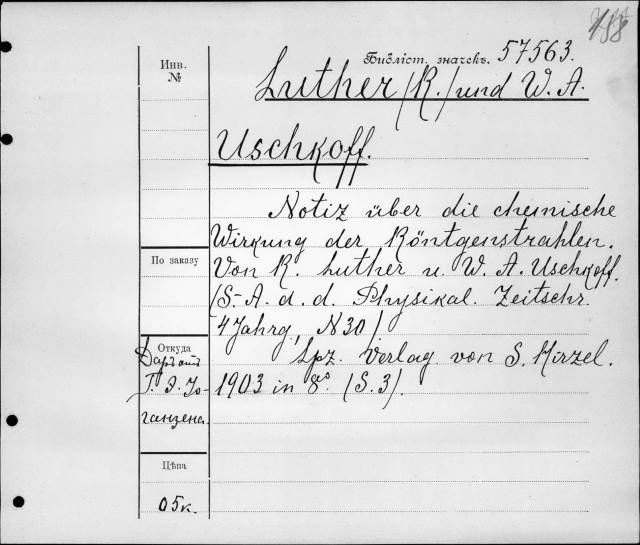 188
Инв. №
Библіот. значекъ. 57563.
Luther (R.) und W. A.
Uschkoff.
Notiz über die chemische
Wirkung der Röntgenstrahlen.
Von R. Luther u. W. A. Uschkoff.
(S.-A. d. d. Physikal. Zeitschr.
4 Jahrg, N 30)
Lpz. Verlag von S. Hirzel.
1903 in 8º. (S. 3).
По заказу
Откуда
Даръ отъ
Г. Э. Іо-
ганзена.
Цѣна
05 к.